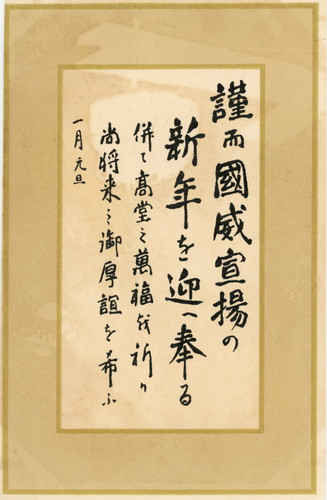 謹而國威宣揚の
新年を迎へ奉る
併て高堂之萬福を祈り
尚将来之御厚誼を希ふ
一月元旦